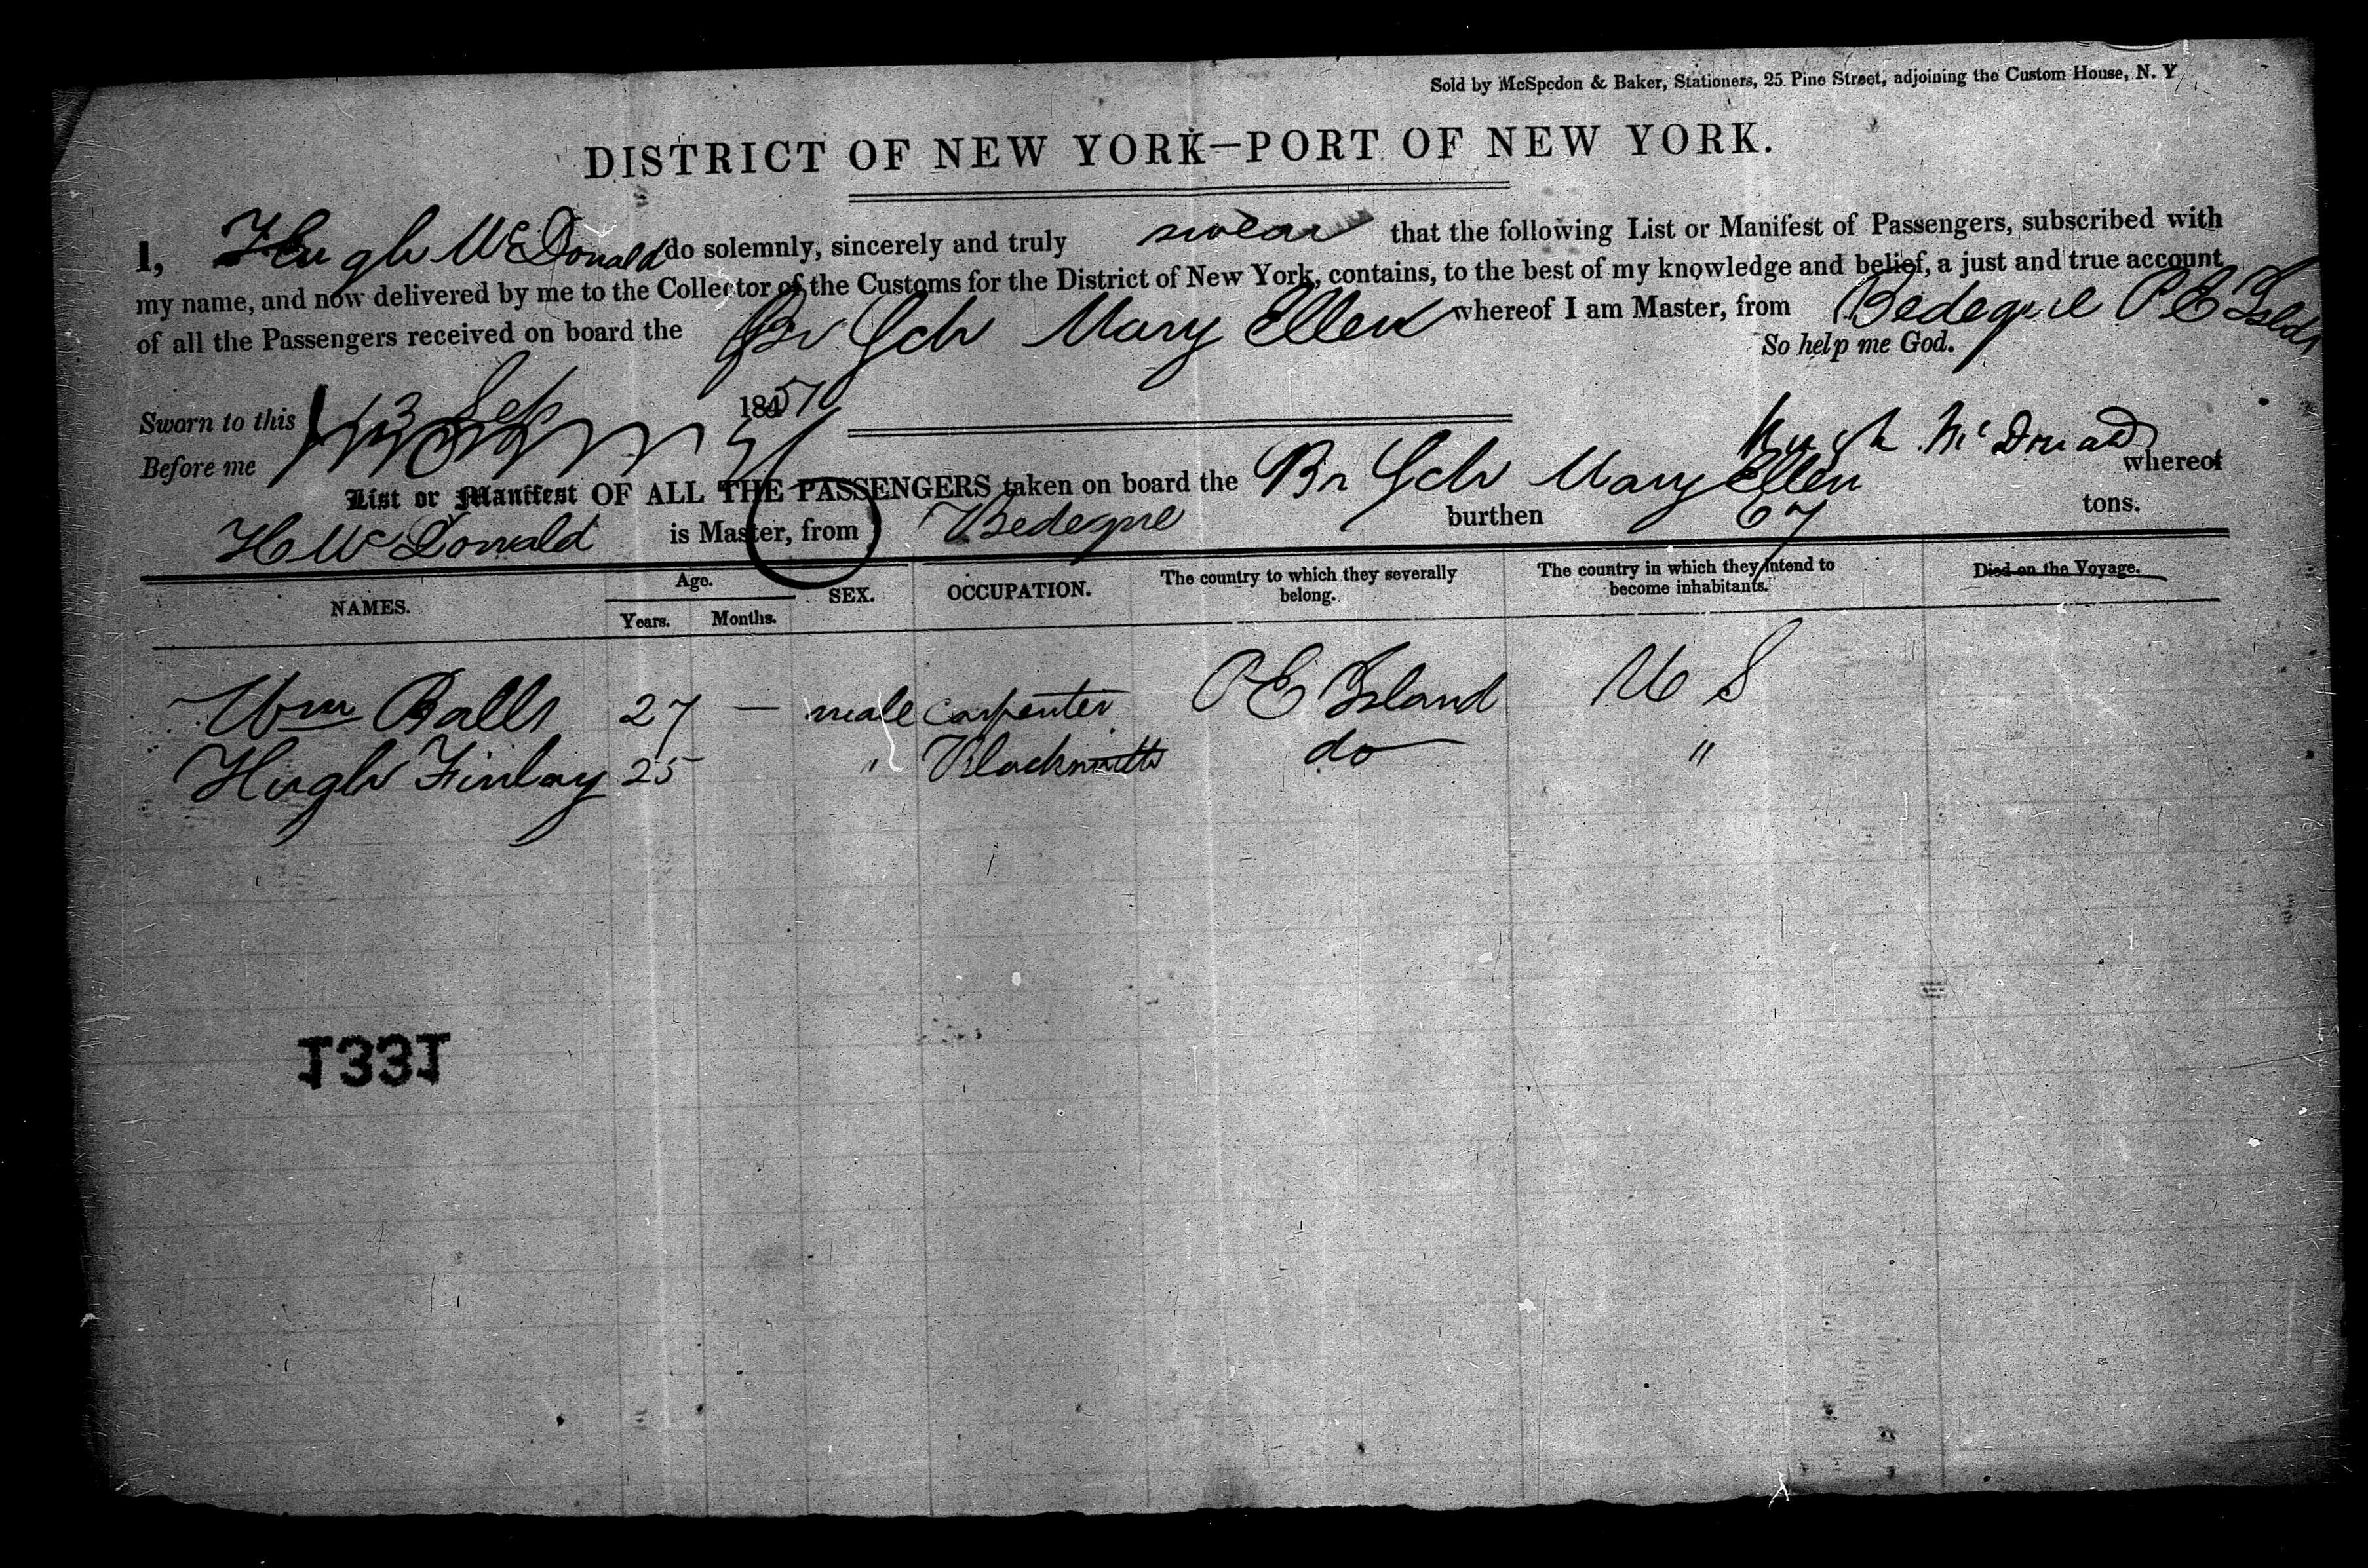 Sold by McSpedon & Baker, Stationers, 25 Pine Street, adjoining the Custom House, N. Y
DISTRICT OF NEW YORK—PORT OF NEW YORK.
I, Hugh McDonald do solemnly, sincerely and truly swear that the following List or Manifest of Passengers, subscribed with
my name, and now delivered by me to the Collector of the Customs for the District of New York, contains, to the best of my knowledge and belief, a just and true account
of all the Passengers received on board the Br Sch Mary Ellen whereof I am Master, from Bedeque P E Island
So help me God.
Sworn to this 13 Sep 1851
Before me
Hugh McDonald
List or Manifest OF ALL THE PASSENGERS taken on board the Br Sch Mary Ellen whereof
H McDonald is Master, from Bedeque burthen 67 tons.
NAMES. Age. Years. Months. SEX. OCCUPATION. The country to which they severally belong. The country in which they intend to become inhabitants. Died on the Voyage.
Wm Balls 27 — male Carpenter P E Island U S
Hugh Finlay 25 " Blacksmith do "
1331